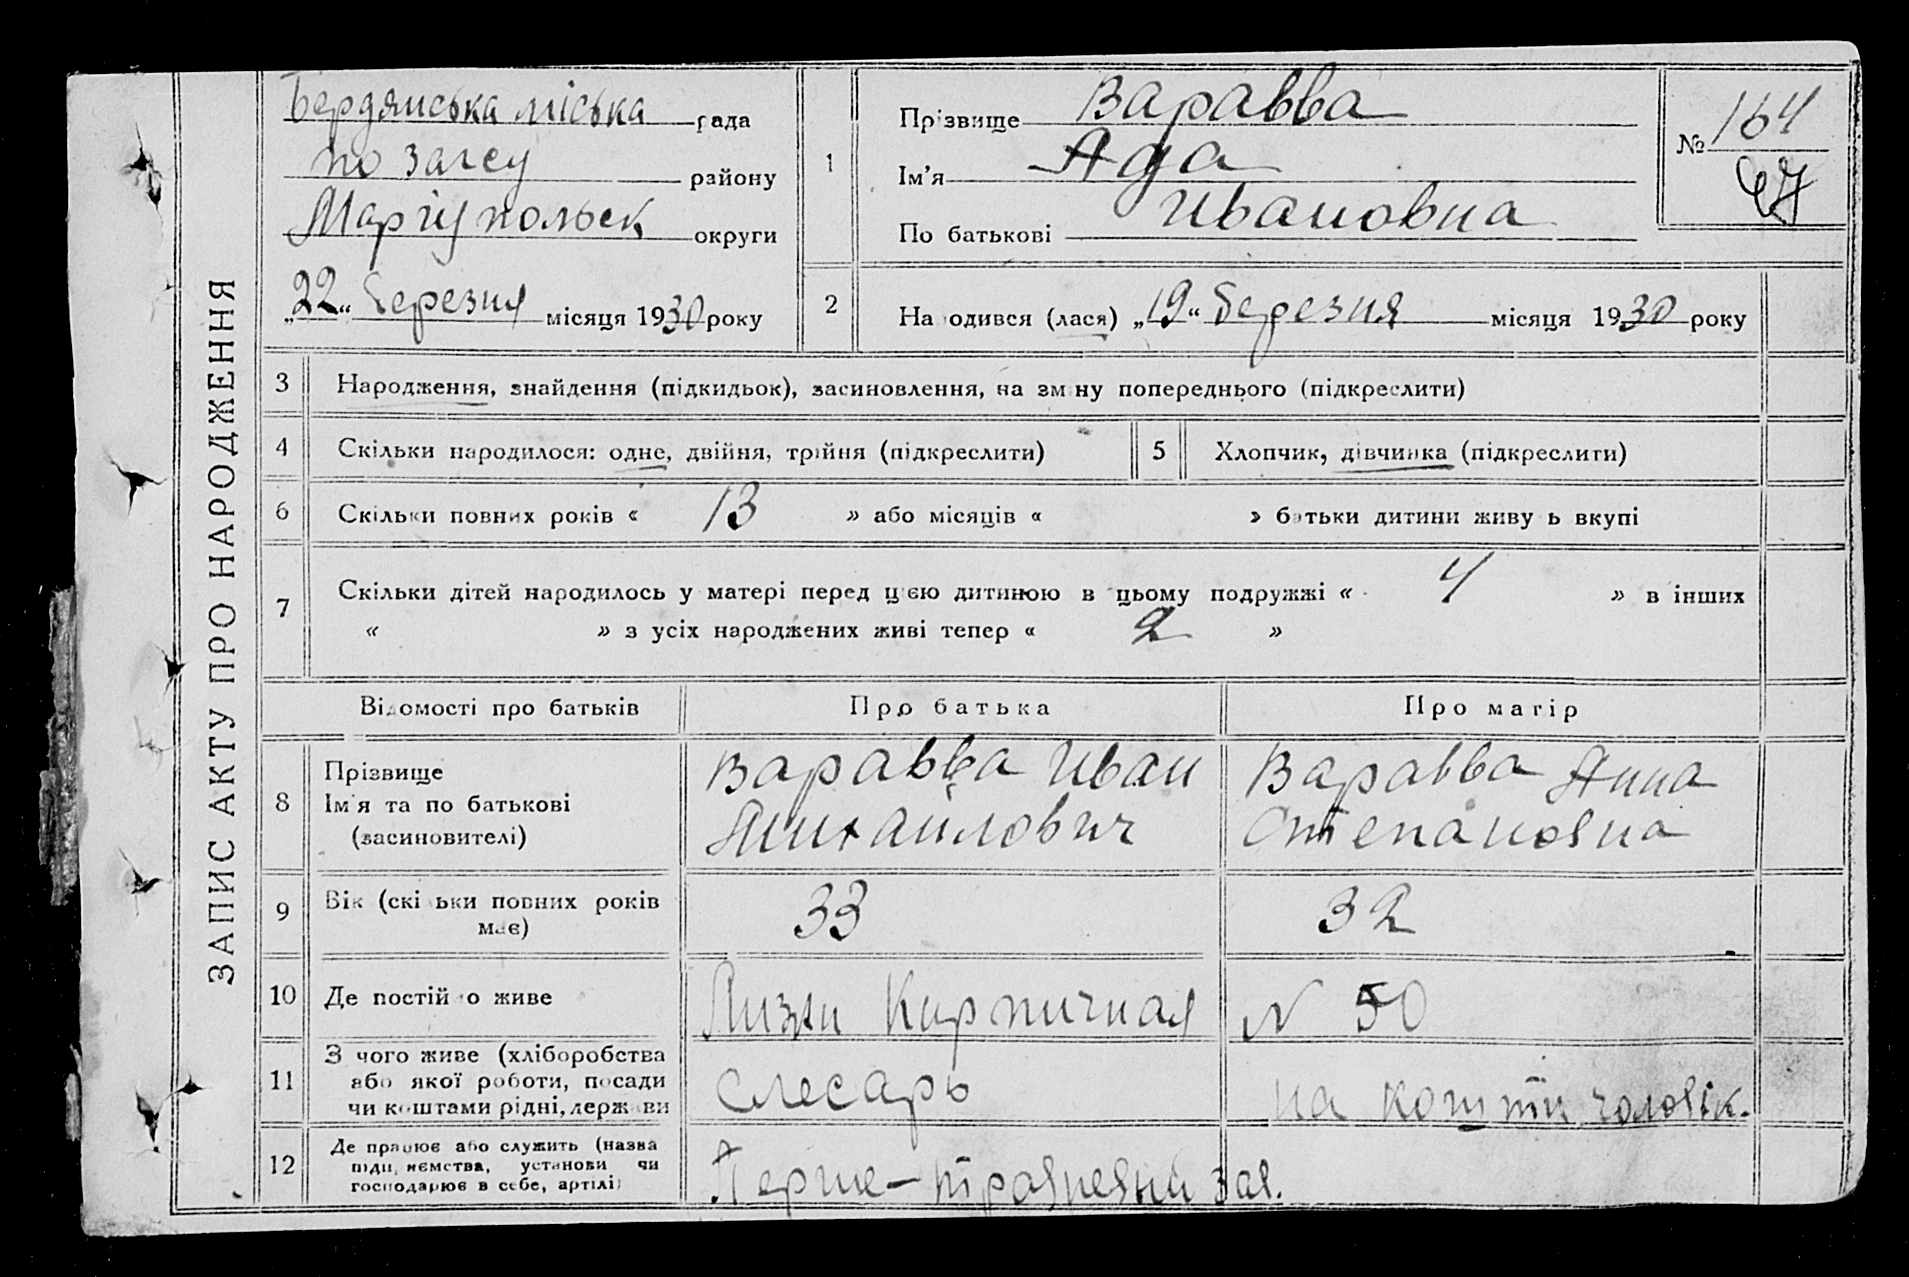 ЗАПИС АКТУ ПРО НАРОДЖЕННЯ
Бердянська міська рада
по загсу району
Маріупольськ округи
„22“ березня місяця 1930 року
1
Прізвище Варавва
Ім'я Ада
По батькові Ивановна
№ 164
67
2
Народився (лася) „19“ березня місяця 1930 року
3 Народження, знайдення (підкидьок), засиновлення, на зміну попереднього (підкреслити)
4 Скільки народилося: одне, двійня, трійня (підкреслити)
5 Хлопчик, дівчинка (підкреслити)
6 Скільки повних років « 13 » або місяців « » батьки дитини живуть вкупі
7 Скільки дітей народилось у матері перед цією дитиною в цьому подружжі « 4 » в інших
« » з усіх народжених живі тепер « 2 »
Відомості про батьків Про батька Про матір
8 Прізвище
Ім'я та по батькові
(засиновителі)
Варавва Иван
Михайлович
Варавва Анна
Степановна
9 Вік (скільки повних років
має)
33
32
10 Де постійно живе
Лизки Кирпичная N 50
11 З чого живе (хліборобства
або якої роботи, посади
чи коштами рідні, держави
Слесарь
на кошти чоловік.
12 Де працює або служить (назва
підприємства, установи чи
господарює в себе, артілі)
Перше-травневий зав.